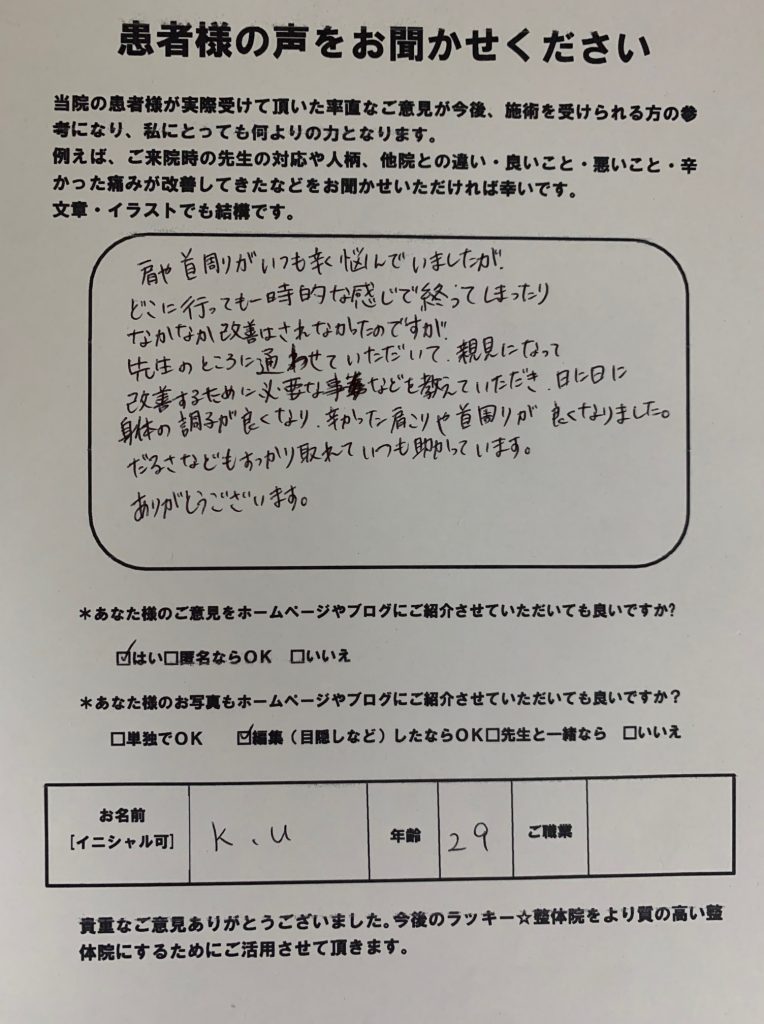 患者様の声をお聞かせください
当院の患者様が実際受けて頂いた率直なご意見が今後、施術を受けられる方の参
考になり、私にとっても何よりの力となります。
例えば、ご来院時の先生の対応や人柄、他院との違い・良いこと・悪いこと・辛
かった痛みが改善してきたなどをお聞かせいただければ幸いです。
文章・イラストでも結構です。
肩や首周りがいつも辛く悩んでいましたが、
どこに行っても一時的な感じで終ってしまったり
なかなか改善はされなかったのですが、
先生のところに通わせていただいて、親見になって
改善するために必要な事などを教えていただき、日に日に
身体の調子が良くなり、辛かった肩こりや首周りが良くなりました。
だるさなどもすっかり取れていつも助かっています。
ありがとうございます。
*あなた様のご意見をホームページやブログにご紹介させていただいても良いですか?
☑はい□匿名ならOK □いいえ
*あなた様のお写真もホームページやブログにご紹介させていただいても良いですか?
□単独でOK ☑編集(目隠しなど)したならOK□先生と一緒なら □いいえ
お名前
[イニシャル可]
K、U
年齢
29
ご職業
貴重なご意見ありがとうございました。今後のラッキー☆整体院をより質の高い整
体院にするためにご活用させて頂きます。